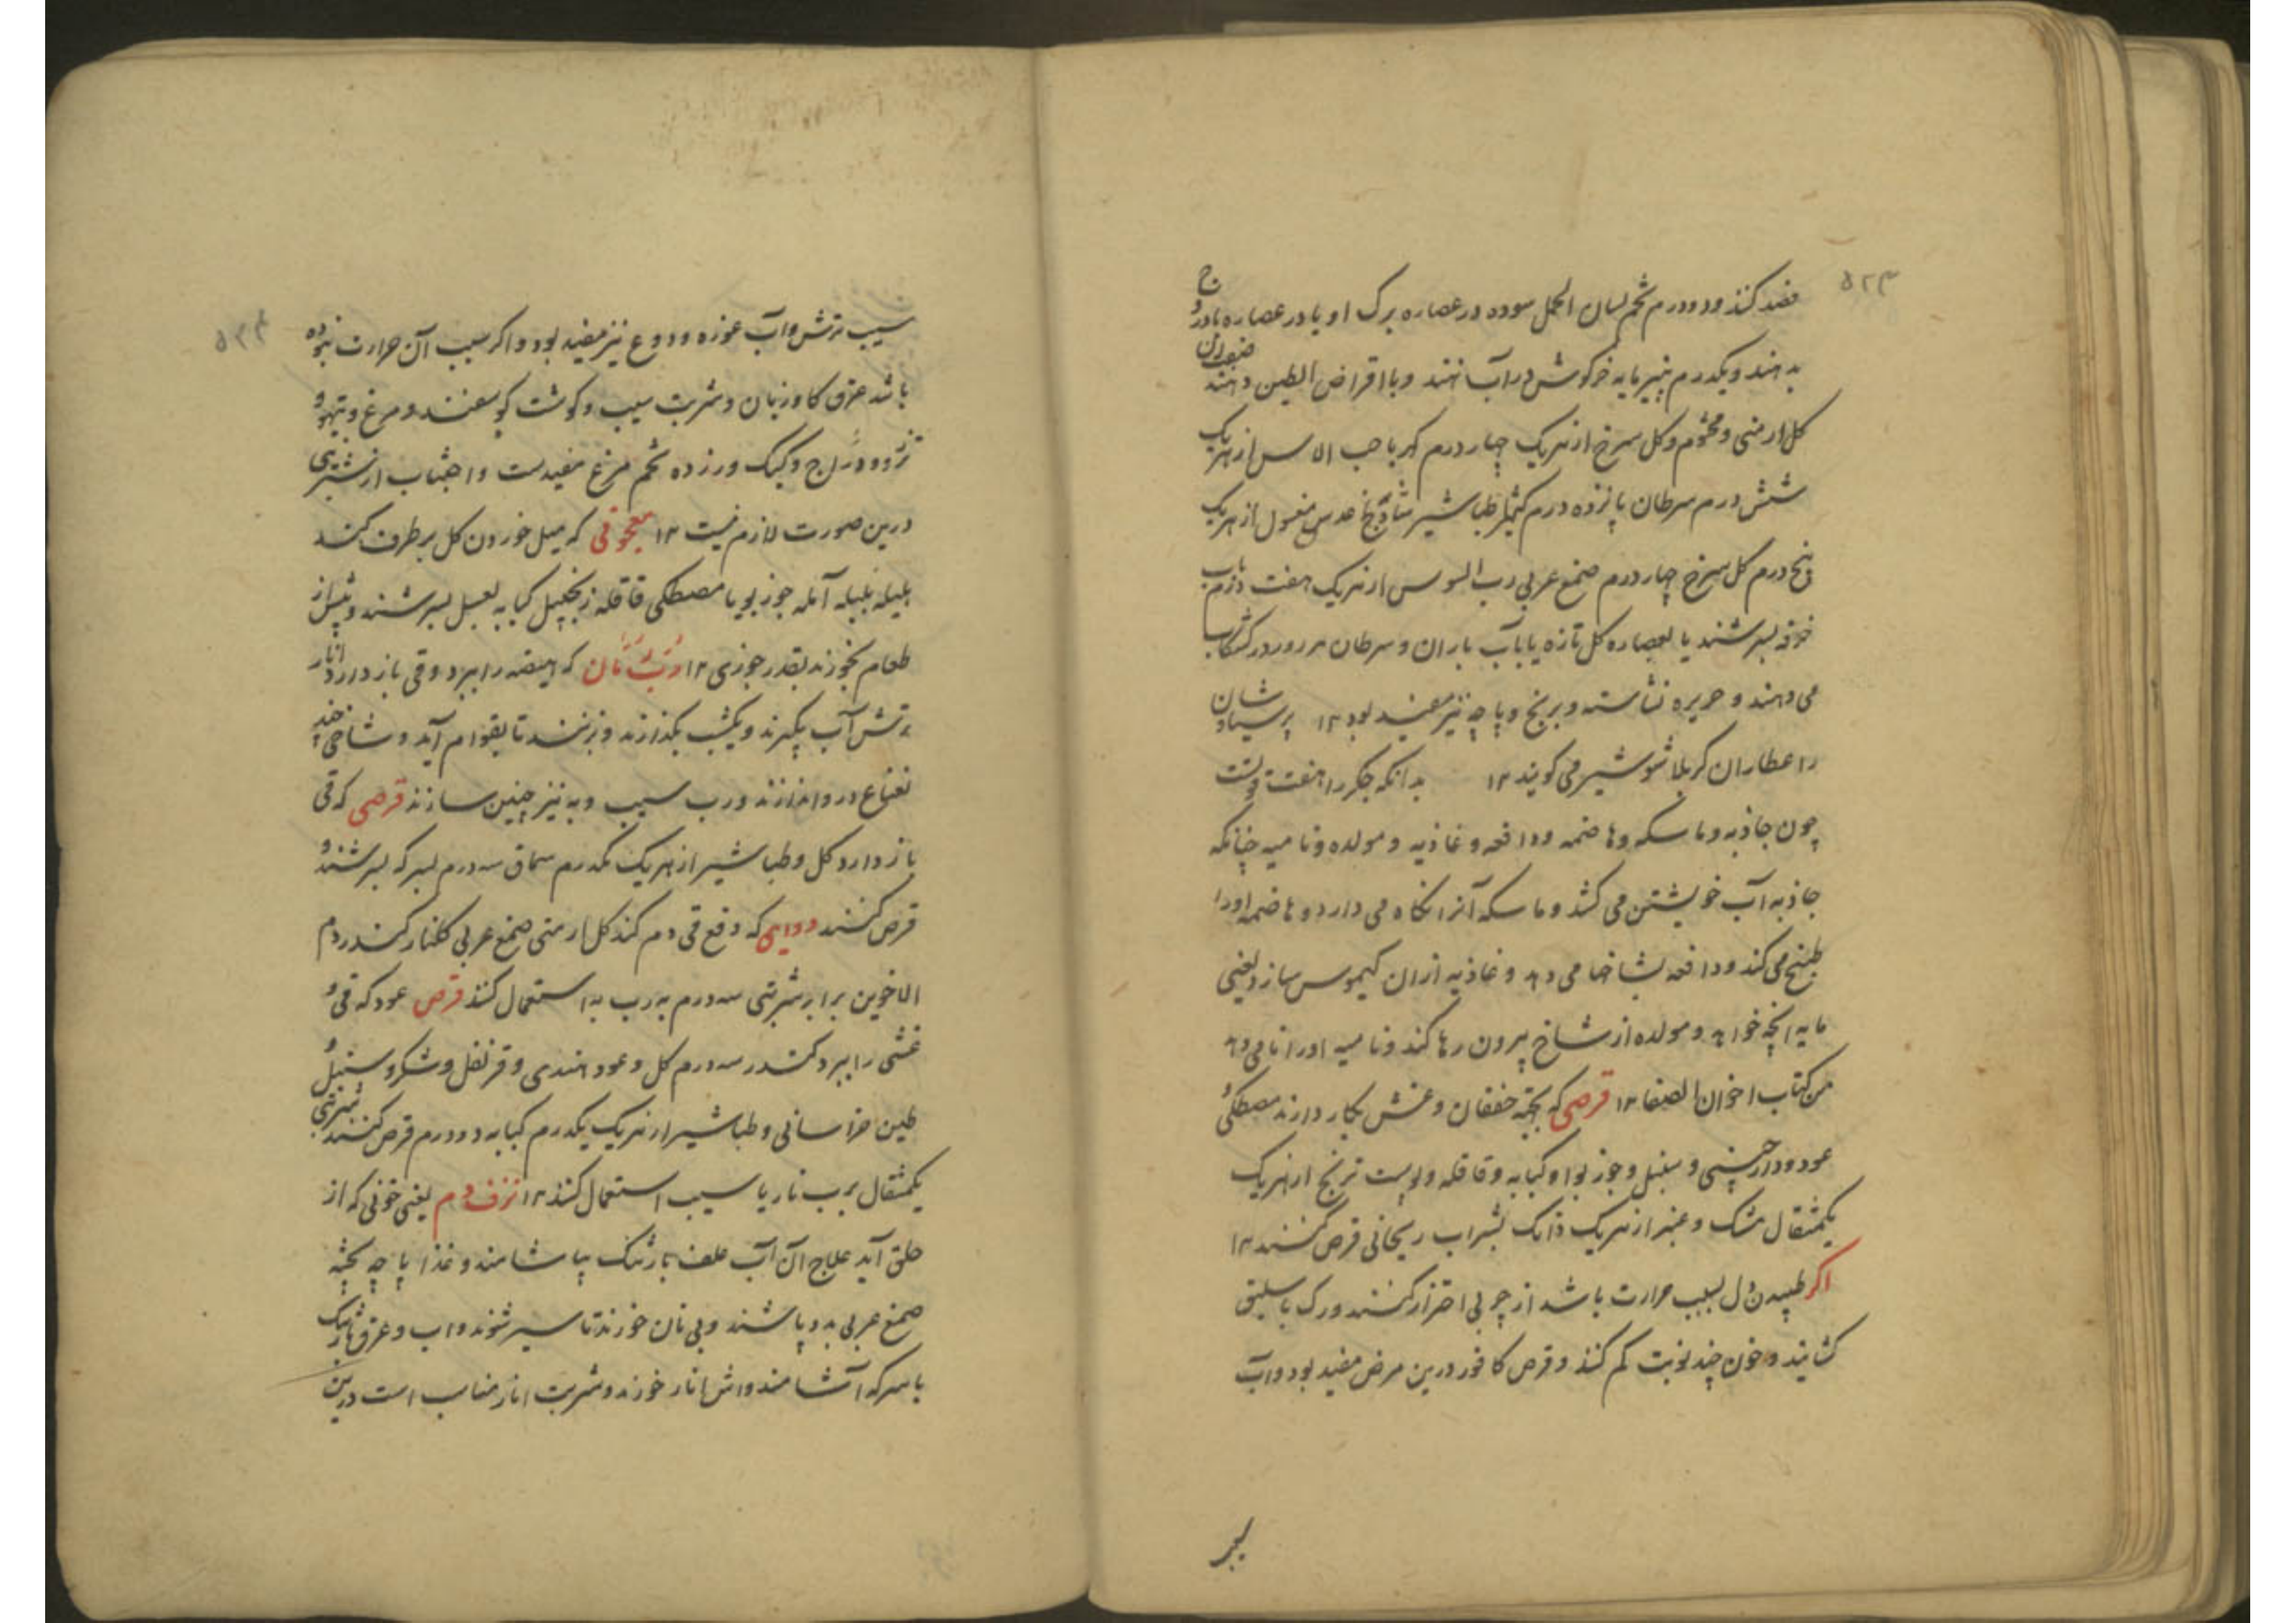 ۵۲۳
فصد کنند و دو درم تخم لسان الحمل سوده در عصاره برک او یا در عصاره بادروج
بدهند و یکدرم پنیر مایه خرکوش در آب نهند و با اقراض الطین دهند
کل ارمنی و مختوم و کل سرخ از هریک چهار درم کهربا حب الاس از هریک
شش درم سرطان پانزده درم طباشیر شادنج عدس مغسول از هریک
پنج درم کل سرخ چهار درم صمغ عربی رب السوس از هریک هفت درم بآب
خرفه بسرشند یا بعصاره کل تازه یا بآب باران و سرطان هر روز در کشکاب
می دهند و حریره نشاسته و برنج و پاچه نیز مفید بود ۱۲ پرسیاوشان
را عطاران کربلا شوشیر می کویند ۱۲ بدانکه جکر را هفت قوتست
چون جاذبه و ماسکه و هاضمه و دافعه و غاذیه و مولده و نامیه چنانکه
جاذبه آب خویشتن می کشد و ماسکه آنرا نکاه می دارد و هاضمه اورا
طبخ می کند و دافعه بشاخها می دهد و غاذیه ازان کیموس سازد یعنی
مایه انچه خواهد و مولده از شاخ بیرون رها کند و نامیه اورا نما می دهد
من کتاب اخوان الصفا ۱۲ قرصی که بجهة خفقان و غش بکار دارند مصطکی و
عود و دارچینی و سنبل و جوز بوا و کبابه و قاقله و پوست ترنج از هریک
یکمثقال مشک و عنبر از هریک دانک بشراب ریحانی قرص کنند ۱۲
اکر طپیدن دل بسبب حرارت باشد از چربی احتراز کنند و رک باسلیق
کشایند و خون چند نوبت کم کنند و قرص کافور درین مرض مفید بود و آب
سیب
۵۲۴
سیب ترش و آب غوزه و دوغ نیز مفید بود و اکر سبب آن حرارت نبوده
باشد عرق کاوزبان و شربت سیب و کوشت کوسفند و مرغ و تیهو و
تزرو و درّاج و کبک و زرده تخم مرغ مفیدست و اجتناب از شیرینی
درین صورت لازم نیست ۱۲ معجونی که میل خوردن کل برطرف کند
هلیله بلیله آمله جوز بویا مصطکی قاقله زنجبیل کبابه بعسل بسرشند و پیش از
طعام بخورند بقدر جوزی ۱۲ ربّ رمّان که هیضه را ببرد و قی باز دارد انار
ترش آب بکیرند و یکشب بکذارند و بزنند تا بقوام آید و شاخی چند
نعناع درو اندازند و رب سیب و به نیز چنین سازند قرصی که قی
باز دارد کل و طباشیر از هریک یکدرم سماق سه درم بسرکه بسرشند و
قرص کنند دوایی که دفع قی دم کند کل ارمنی صمغ عربی کلنار کندر دم
الاخوین برابر شربتی سه درم به رب به استعمال کنند قرص عود که قی و
غشی را ببرد کندر سه درم کل و عود هندی و قرنفل و شکر و سنبل و
طین خراسانی و طباشیر از هریک یکدرم کبابه دو درم قرص کنند شربتی
یکمثقال برب نار یا سیب استعمال کنند ۱۲ نزف دم یعنی خونی که از
حلق آید علاج آن آب علف بارتنک بیاشامند و غذا پاچه پخته
صمغ عربی بدو پاشند و بی نان خورند تا سیر شوند و اب و عرق بارتنک
با سرکه آشامند و اش انار خورند و شربت انار مناسب است درین